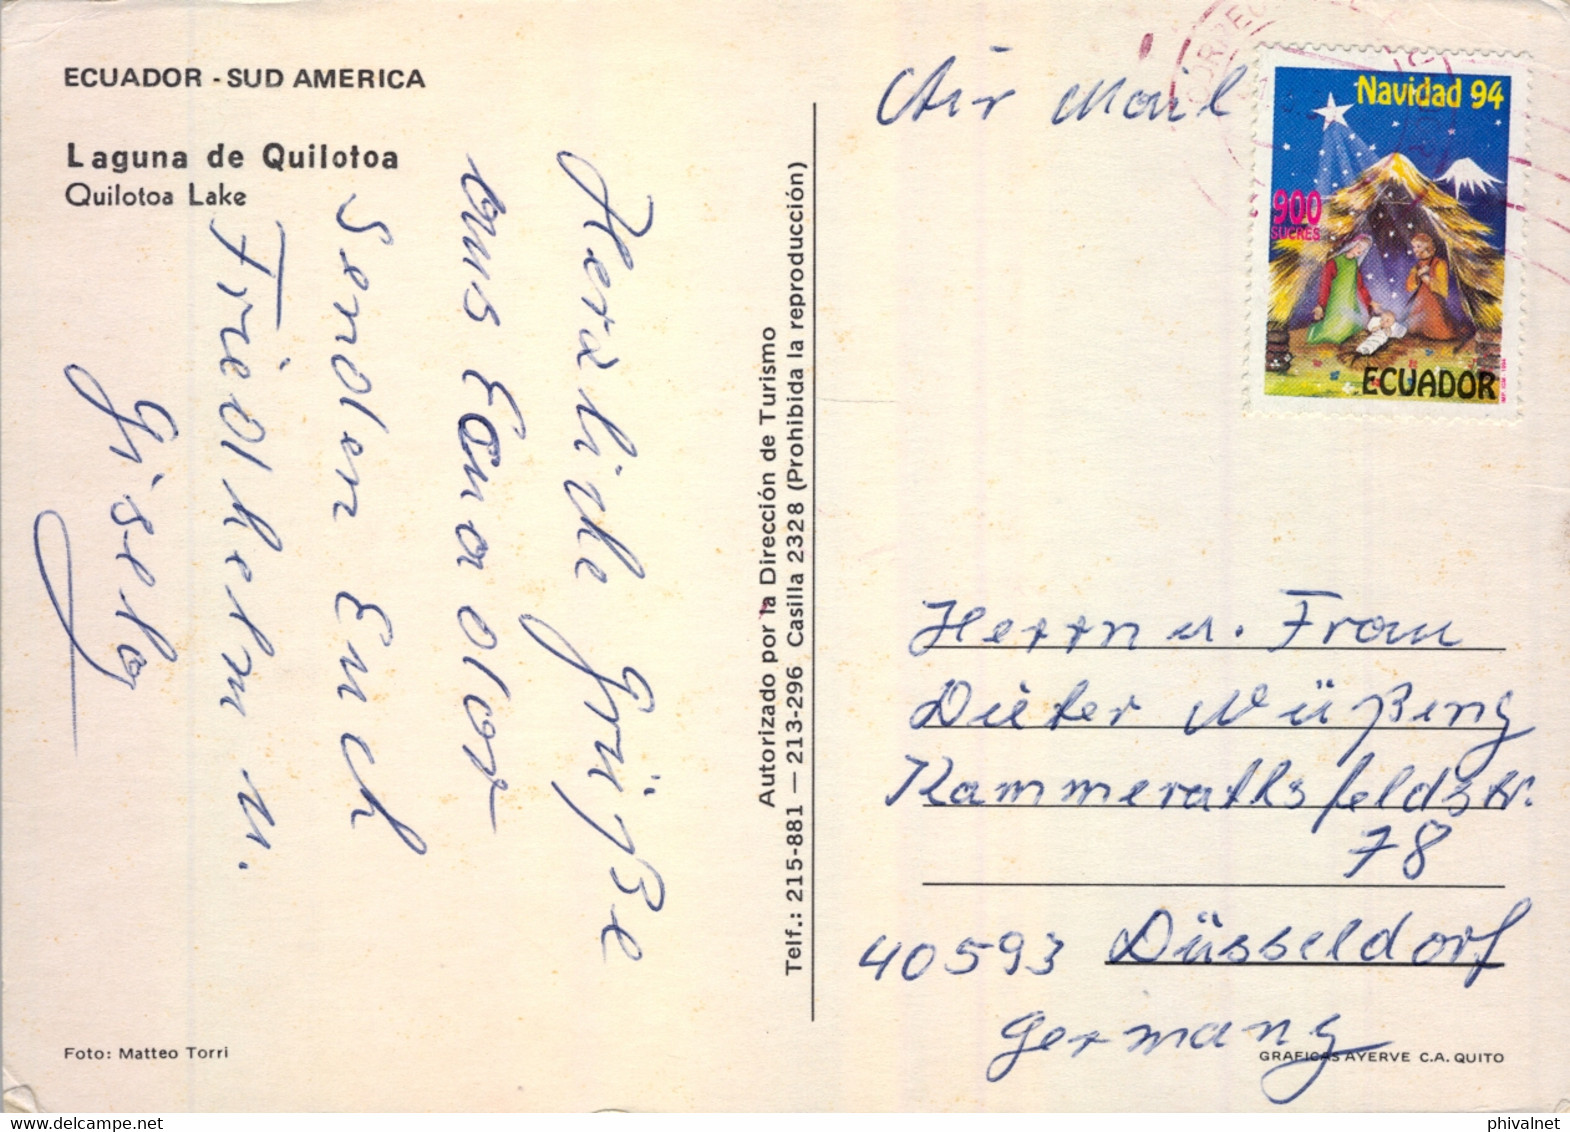 ECUADOR - SUD AMERICA
Laguna de Quilotoa
Quilotoa Lake
Herzliche Grüße
aus Ecuador
senden Euch
Friedhelm u.
Gisela
Foto: Matteo Torri
Autorizado por la Dirección de Turismo
Telf.: 215-881 — 213-296 Casilla 2328 (Prohibida la reproducción)
Air Mail
Navidad 94
900
SUCRES
ECUADOR
Herrn u. Frau
Dieter Wüßing
Kammerathsfeldstr.
78
40593 Düsseldorf
Germany
GRAFICAS AYERVE C.A. QUITO
phivalnet